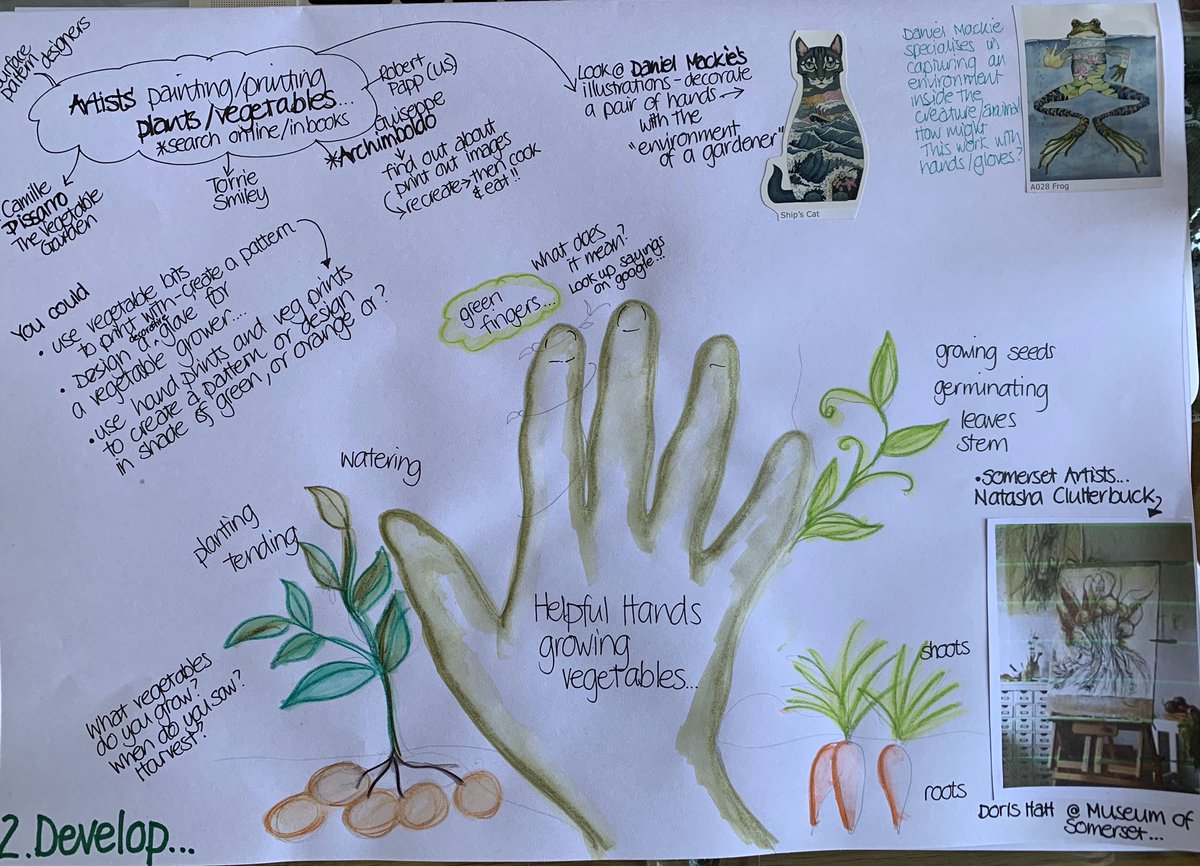 surface
pattern designers
Artists' painting/printing
plants/vegetables...
*search online/inbooks
Robert
Papp (US)
Guiseppe
*Archimboldo
find out about
print out images
recreate → then cook
& eat!!
Torrie
Smiley
Camille
Pissarro
The vegetable
Garden
Look@ Daniel Mackie's
illustrations - decorate
a pair of hands →
with the
"environment
of a gardener"
Ship's Cat
Daniel Mackie
specialises in
capturing an
environment
inside the
creature/animal
How might
This work with
hands/gloves?
A028 Frog
You could
• use vegetable bits
to print with - create a pattern
• Design a decorative glove for
a vegetable grower....
• use hand prints and veg prints
to create a pattern or design
in shade of green, or orange or?
green
fingers...
What does
it mean?
Look up sayings
on google...
growing seeds
germinating
leaves
stem
• Somerset Artists...
Natasha Clutterbuck
watering
planting
tending
Helpful Hands
growing
vegetables...
What vegetables
do you grow?
When do you sow?
Harvest?
shoots
roots
Doris Hatt @ Museum of
Somerset...
2. Develop...